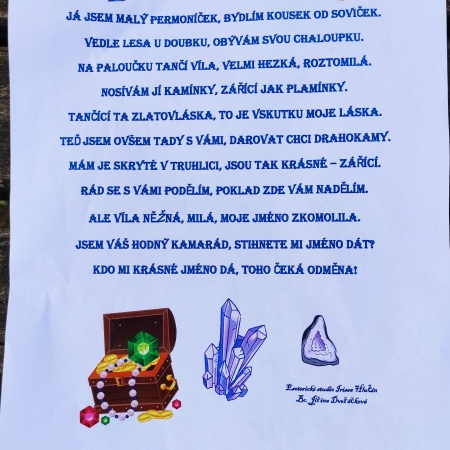 JÁ JSEM MALÝ PERMONÍČEK, BYDLÍM KOUSEK OD SOVIČEK.
VEDLE LESA U DOUBKU, OBÝVÁM SVOU CHALOUPKU.
NA PALOUČKU TANČÍ VÍLA, VELMI HEZKÁ, ROZTOMILÁ.
NOSÍVÁM JÍ KAMÍNKY, ZÁŘÍCÍ JAK PLAMÍNKY.
TANČÍCÍ TA ZLATOVLÁSKA, TO JE VSKUTKU MOJE LÁSKA.
TEĎ JSEM OVŠEM TADY S VÁMI, DAROVAT CHCI DRAHOKAMY.
MÁM JE SKRYTÉ V TRUHLICI, JSOU TAK KRÁSNÉ – ZÁŘÍCÍ.
RÁD SE S VÁMI PODĚLÍM, POKLAD ZDE VÁM NADĚLÍM.
ALE VÍLA NĚŽNÁ, MILÁ, MOJE JMÉNO ZKOMOLILA.
JSEM VÁŠ HODNÝ KAMARÁD, STIHNETE MI JMÉNO DÁT?
KDO MI KRÁSNÉ JMÉNO DÁ, TOHO ČEKÁ ODMĚNA!
Esoterické studio Irisee Hlučín
Bc. Jiřina Dvořáčková